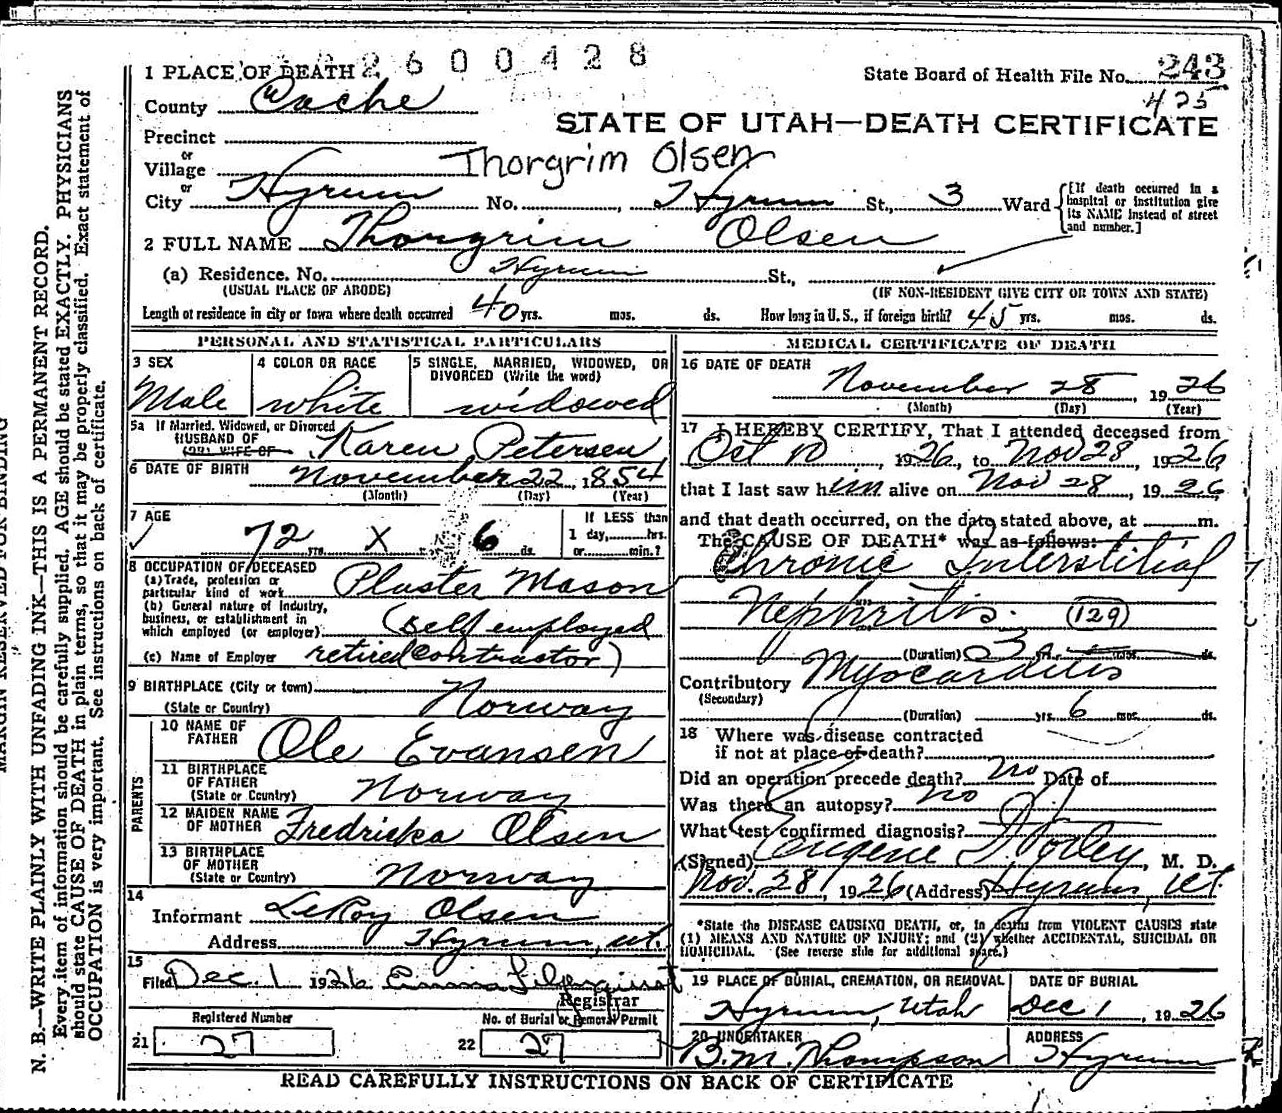 2600428
1 PLACE OF DEATH
State Board of Health File No. 243
425
County Cache
STATE OF UTAH—DEATH CERTIFICATE
Precinct
or
Village Thorgrim Olsen
or
City Hyrum No. , Hyrum St., 3 Ward
[If death occurred in a hospital or institution give its NAME instead of street and number.]
2 FULL NAME Thorgrim Olsen
(a) Residence. No. Hyrum St.,
(USUAL PLACE OF ABODE) (IF NON-RESIDENT GIVE CITY OR TOWN AND STATE)
Length of residence in city or town where death occurred 40 yrs. mos. ds. How long in U. S., if foreign birth? 45 yrs. mos. ds.
PERSONAL AND STATISTICAL PARTICULARS
3 SEX
Male
4 COLOR OR RACE
white
5 SINGLE, MARRIED, WIDOWED, OR
DIVORCED (Write the word)
widowed
5a If Married, Widowed, or Divorced
HUSBAND OF
(or) WIFE OF Karen Petersen
6 DATE OF BIRTH November 22, 1854
(Month) (Day) (Year)
7 AGE
72 yrs. X 6 ds.
If LESS than
1 day, hrs.
or min.?
8 OCCUPATION OF DECEASED
(a) Trade, profession or
particular kind of work Plaster Mason
(b) General nature of industry,
business, or establishment in
which employed (or employer) (Self employed
(c) Name of Employer retired contractor)
9 BIRTHPLACE (City or town)
(State or Country) Norway
PARENTS
10 NAME OF
FATHER Ole Evansen
11 BIRTHPLACE
OF FATHER
(State or Country) Norway
12 MAIDEN NAME
OF MOTHER Fredricka Olsen
13 BIRTHPLACE
OF MOTHER
(State or Country) Norway
14
Informant LeRoy Olsen
Address Hyrum, Ut.
15
Filed Dec. 1 1926 Emma
Registrar
Registered Number
21 27
No. of Burial or Removal Permit
22 27
MEDICAL CERTIFICATE OF DEATH
16 DATE OF DEATH
November 28, 1926
(Month) (Day) (Year)
17 I HEREBY CERTIFY, That I attended deceased from
Oct 10, 1926, to Nov 28, 1926
that I last saw him alive on Nov 28, 1926
and that death occurred, on the date stated above, at m.
The CAUSE OF DEATH* was as follows:
Chronic Interstitial
Nephritis. (129)
(Duration) 3 yrs. mos. ds.
Contributory Myocarditis
(Secondary)
(Duration) yrs. 6 mos. ds.
18 Where was disease contracted
if not at place of death?
Did an operation precede death? no Date of
Was there an autopsy? no
What test confirmed diagnosis?
(Signed) Eugene Worley, M. D.
Nov. 28, 1926 (Address) Hyrum, Ut.
*State the DISEASE CAUSING DEATH, or, in deaths from VIOLENT CAUSES state
(1) MEANS AND NATURE OF INJURY; and (2) whether ACCIDENTAL, SUICIDAL OR
HOMICIDAL. (See reverse side for additional space.)
19 PLACE OF BURIAL, CREMATION, OR REMOVAL
Hyrum, Utah
DATE OF BURIAL
Dec 1, 1926
20 UNDERTAKER
B. M. Thompson
ADDRESS
Hyrum
READ CAREFULLY INSTRUCTIONS ON BACK OF CERTIFICATE
MARGIN RESERVED FOR BINDING
N. B.—WRITE PLAINLY WITH UNFADING INK—THIS IS A PERMANENT RECORD.
Every item of information should be carefully supplied. AGE should be stated EXACTLY. PHYSICIANS
should state CAUSE OF DEATH in plain terms, so that it may be properly classified. Exact statement of
OCCUPATION is very important. See instructions on back of certificate.